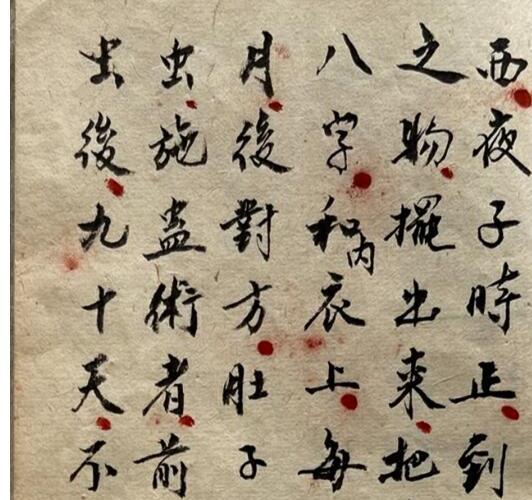 西夜子時正到
之物擺出来把
八字和内衣上每
月後對方肚子
虫施蛊術者前
出後九十天不